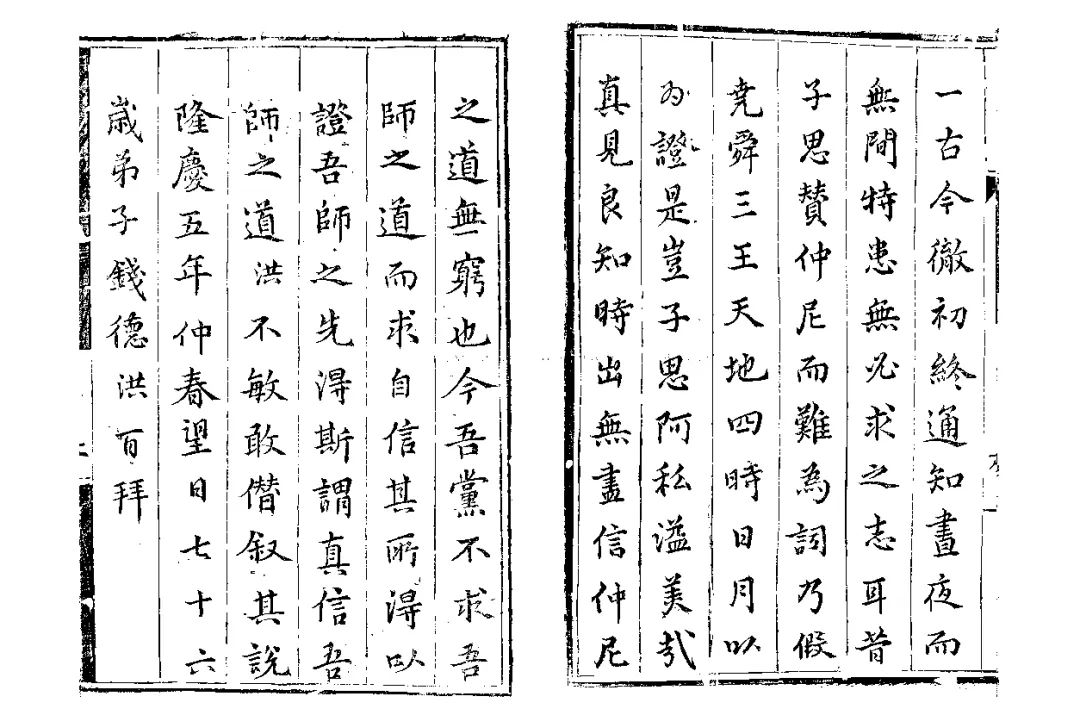 一古今徹初終通知晝夜而
無間特患無必求之志耳昔
子思贊仲尼而難為詞乃假
堯舜三王天地四時日月以
為證是豈子思阿私溢美㢤
真見良知時出無盡信仲尼
之道無窮也今吾黨不求吾
師之道而求自信其所得以
證吾師之先得斯謂真信吾
師之道洪不敏敢僭叙其說
隆慶五年仲春望日七十六
歲弟子錢德洪百拜